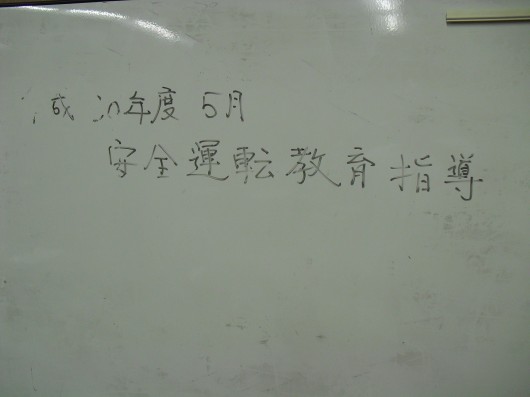 成 20年度 5月
安全運転教育指導